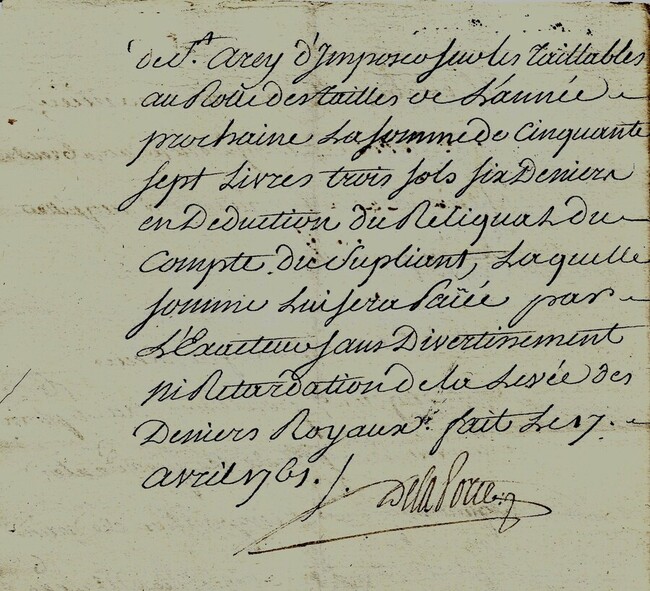 de St. Arey d'Imposer sur les Taillables
au Rolle des Tailles de L'année
prochaine La somme de Cinquante
sept Livres trois sols six Deniers
en Deduction du Reliquat du
Compte du Supliant, Laquelle
somme Lui sera Païée par
L'Exacteur sans Divertissement
ni Retardation de la Levée des
Deniers Royaux. fait Le 17.
avril 1761.
De la Porte